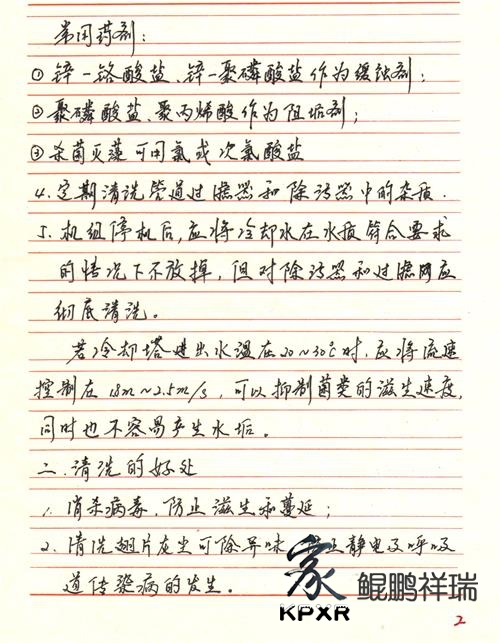 常用药剂：
①锌-铬酸盐、锌-聚磷酸盐作为缓蚀剂；
②聚磷酸盐、聚丙烯酸作为阻垢剂；
③杀菌灭藻可用氯或次氯酸盐
4.定期清洗管道过滤器和除污器中的杂质.
5.机组停机后,应将冷却水在水质符合要求
的情况下不放掉，但对除污器和过滤网应
彻底清洗。
若冷却塔进出水温在20~30℃时，应将流速
控制在1.8m~2.5m/s，可以抑制菌类的滋生速度，
同时也不容易产生水垢。
二.清洗的好处
1.消杀病毒，防止滋生和蔓延；
2.清洗翅片灰尘可除异味 静电及呼吸
道传染病的发生。
家 鲲鹏祥瑞
KPXR
2